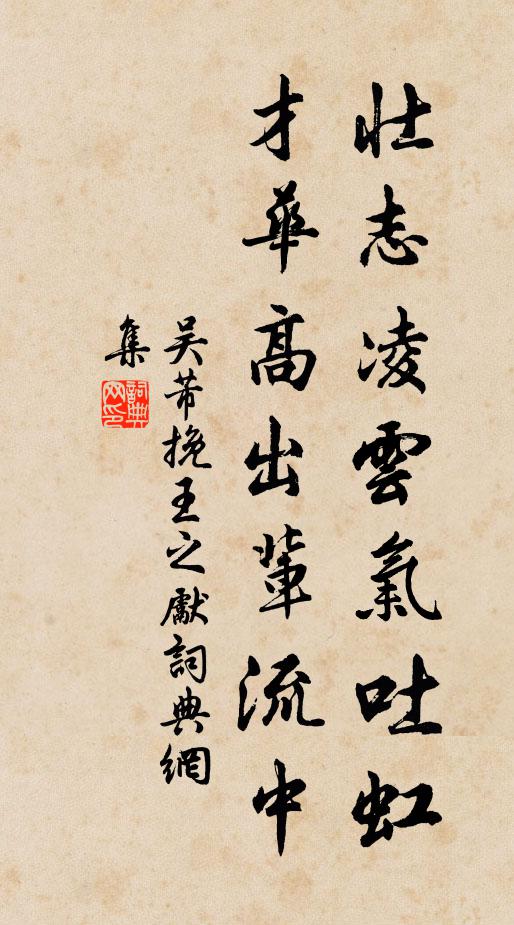 壯志凌雲氣吐虹
才華高出輩流中
吴芾挽王之獻詞典網
集
詞典
網印